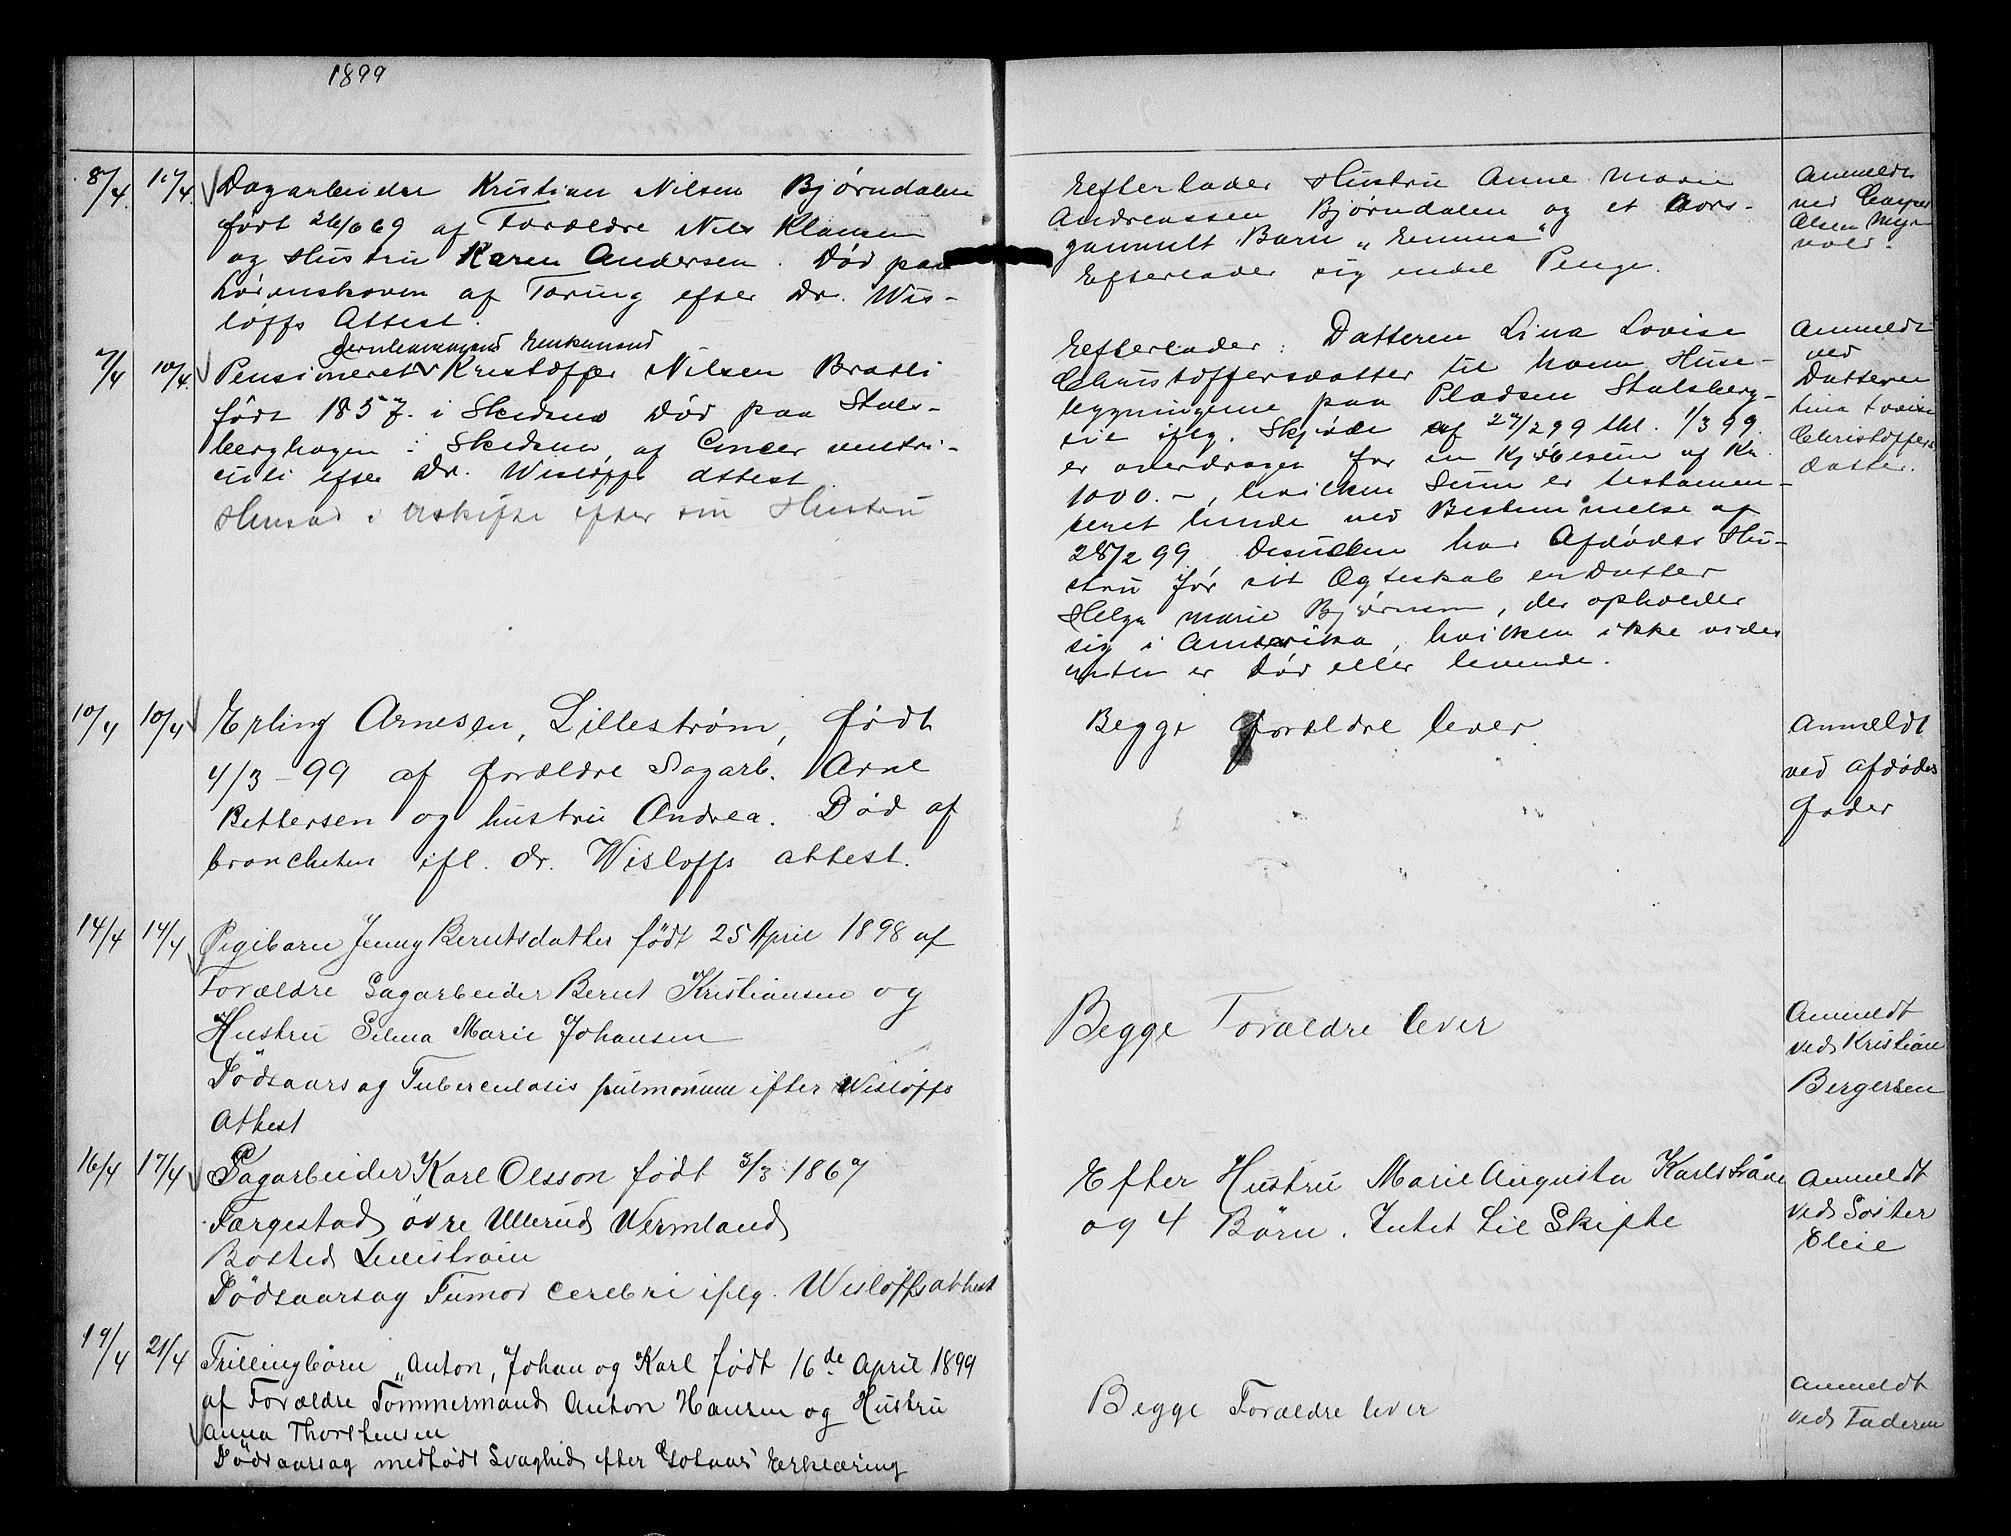 1899
8/4 10/4 Dagarbeider Kristian Nilsen Bjørndalen
født 26/6 69 af Forældre Nils Klausen
og Hustru Karen Andersen. Død paa
af Tæring efter Dr. Wis-
løffs Attest.
Enkemand
7/4 10/4 Pensioneret Kristoffer Nilsen Braatli
født 1857. i Skedsmo Død paa Stals-
berghagen i Skedsmo af Cancer ventri-
culi efter Dr. Wisløffs attest
Hensad i uskifte efter sin Hustru
10/4 10/4 Erling Arnesen, Lillestrøm, født
4/3-99 af forældre Sagarb. Arne
Pettersen og hustru Andrea. Død af
ifl. dr. Wisløffs attest.
14/4 14/4 Pigebarn Jenny Berntsdatter født 25 April 1898 af
Forældre Sagarbeider Bernt Kristiansen og
Hustru Selma Marie Johansen
Dødsaarsag Tuberculosis pulmonum efter Wisløffs
Attest
16/4 17/4 Sagarbeider Karl Olsson født 3/3 1867
Færgestad övre Ullerud Wermland
Bosted Lillestrøm
Dødsaarsag Tumor cerebri iflg. Wisløffs attest
19/4 21/4 Trillingbørn „Anton, Johan og Karl født 16de April 1899
af Forældre Tømmermand Anton Hansen og Hustru
Anna Thorstensen
Dødsaarsag medfødt Svaghed efter Erklæring
Efterlader Hustru Anne Marie
Andreassen Bjørndalen og et aars-
gammelt Barn „Emma"
Efterlader sig endel Penge.
Anmeldt
ved Casper
Olsen Myr-
vold.
Efterlader: Datteren Lina Lovise
Christoffersdatter til hvem Huse-
bygningerne paa Pladsen Stalsberg-
iflg. Skjøde af 27/2 99 thl. 1/3 99
er overdraget for en Kjøbesum af Kr.
1000.-, hvilken Sum er testamen-
teret hende ved Bestemmelse af
28/2 99. Desuden har Afdødes Hu-
stru før sit Ægteskab en Datter
Helga Marie Bjørnsen, der opholder
sig i Amerika, hvilken ikke vides
enten er Død eller levende.
Anmeldt
ved
Datteren
Lina Lovise
Christoffers-
datter.
Begge forældre lever.
Anmeldt
ved afdødes
fader
Begge Forældre lever
Anmeldt
ved Kristian
Bergersen
Efter Hustru Marie Augusta
og 4 Børn. Intet til Skifte
Anmeldt
ved Søster
Elise
Begge Forældre lever
Anmeldt
ved Faderen